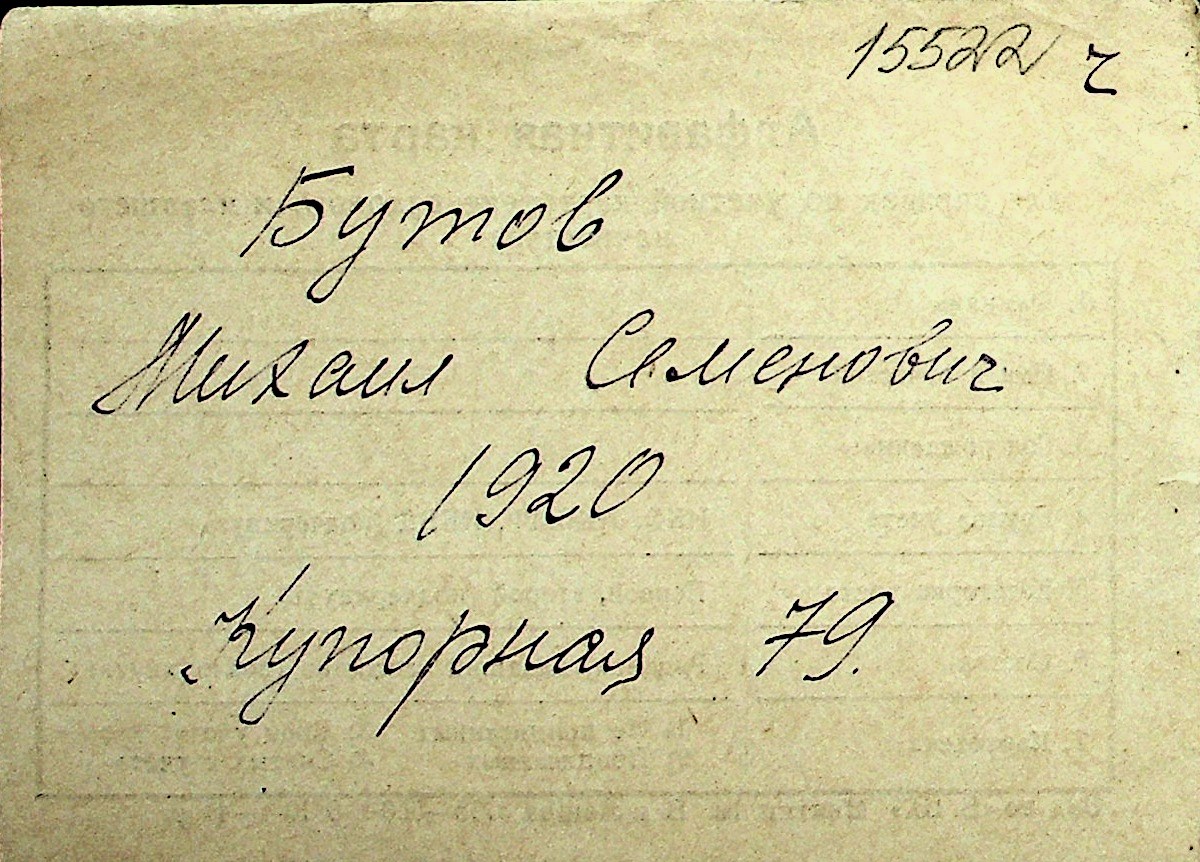 15522 ч
Бутов
Михаил Семенович
1920
Купорная 79.